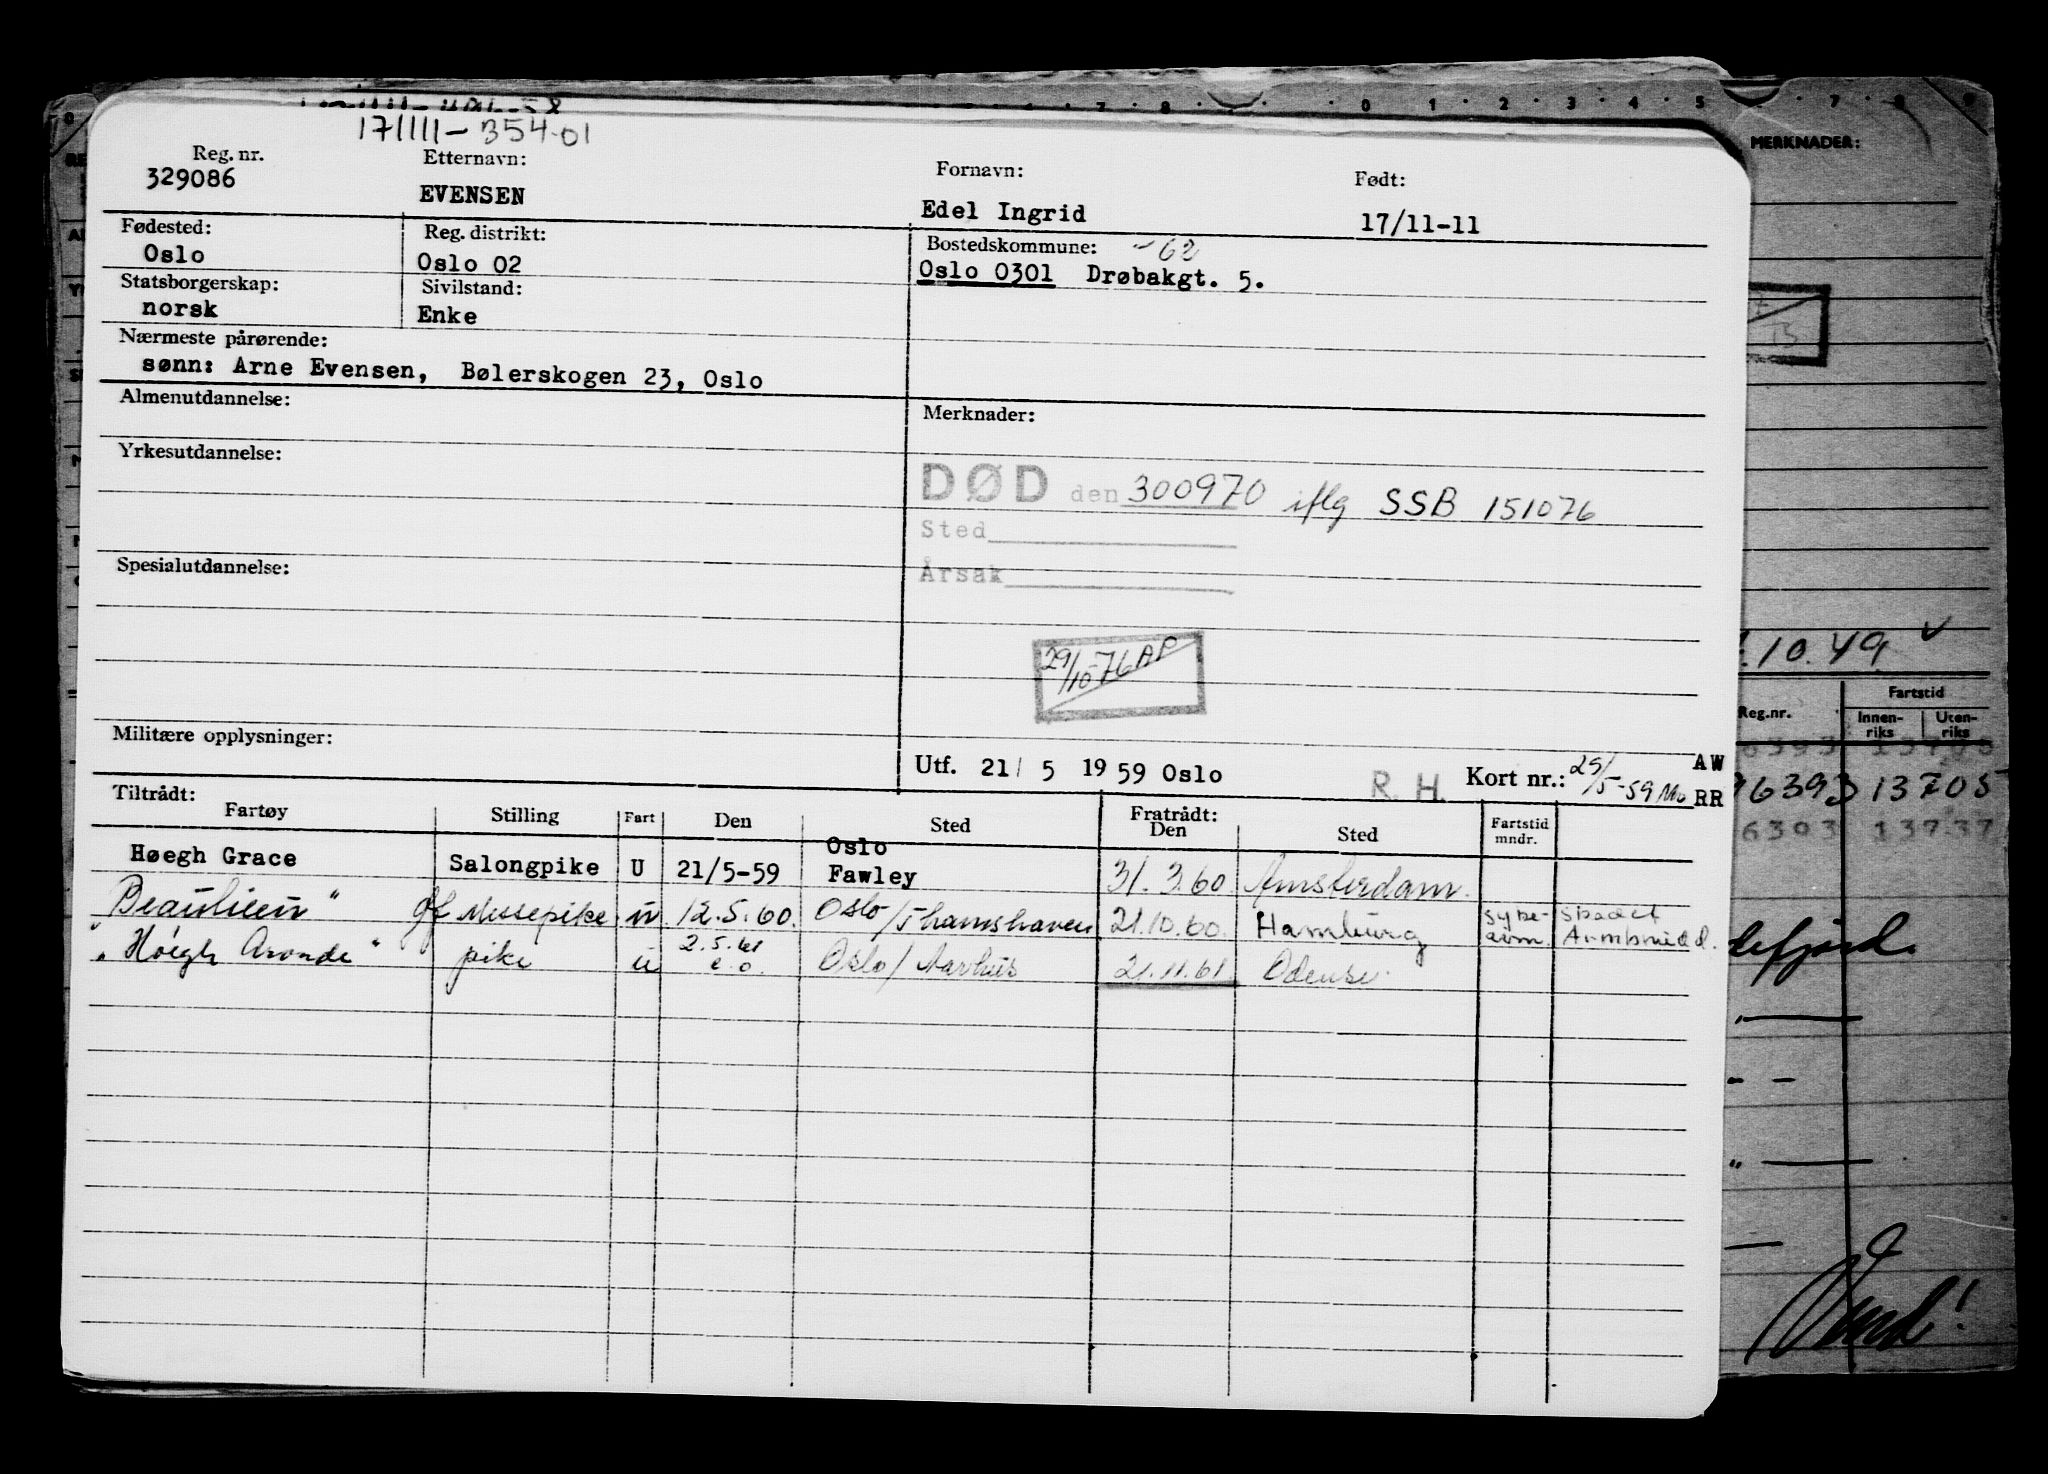 171111-354-01
Reg. nr. Etternavn: Fornavn: Født:
329086 EVENSEN Edel Ingrid 17/11-11
Fødested: Reg. distrikt: Bostedskommune: -62
Oslo Oslo 02 Oslo 0301 Drøbakgt. 5.
Statsborgerskap: Sivilstand:
norsk Enke
Nærmeste pårørende:
sønn: Arne Evensen, Bølerskogen 23, Oslo
Almenutdannelse: Merknader:
Yrkesutdannelse:
DØD den 300970 iflg SSB 151076
Sted
Årsak
Spesialutdannelse:
29/10-76 AP
Militære opplysninger:
Utf. 21/ 5 1959 Oslo R. H. Kort nr.: 25/5-59 Mo AW
RR
Tiltrådt: Fratrådt:
Fartøy Stilling Fart Den Sted Den Sted Fartstid mndr.
Høegh Grace Salongpike U 21/5-59 Oslo Fawley 31.3.60 Amsterdam.
"Beaulieu" Messepike u 12.5.60. Oslo/Thamshaven 21.10.60. Hamburg skadet
"Höegh Aronde" pike u 2.5.61 e.o. Oslo/Aarhus 21.11.61. Odense.
MERKNADER:
.10.49
Reg.nr. Fartstid
Innen-riks Uten-riks
96393 13705
6393 13737